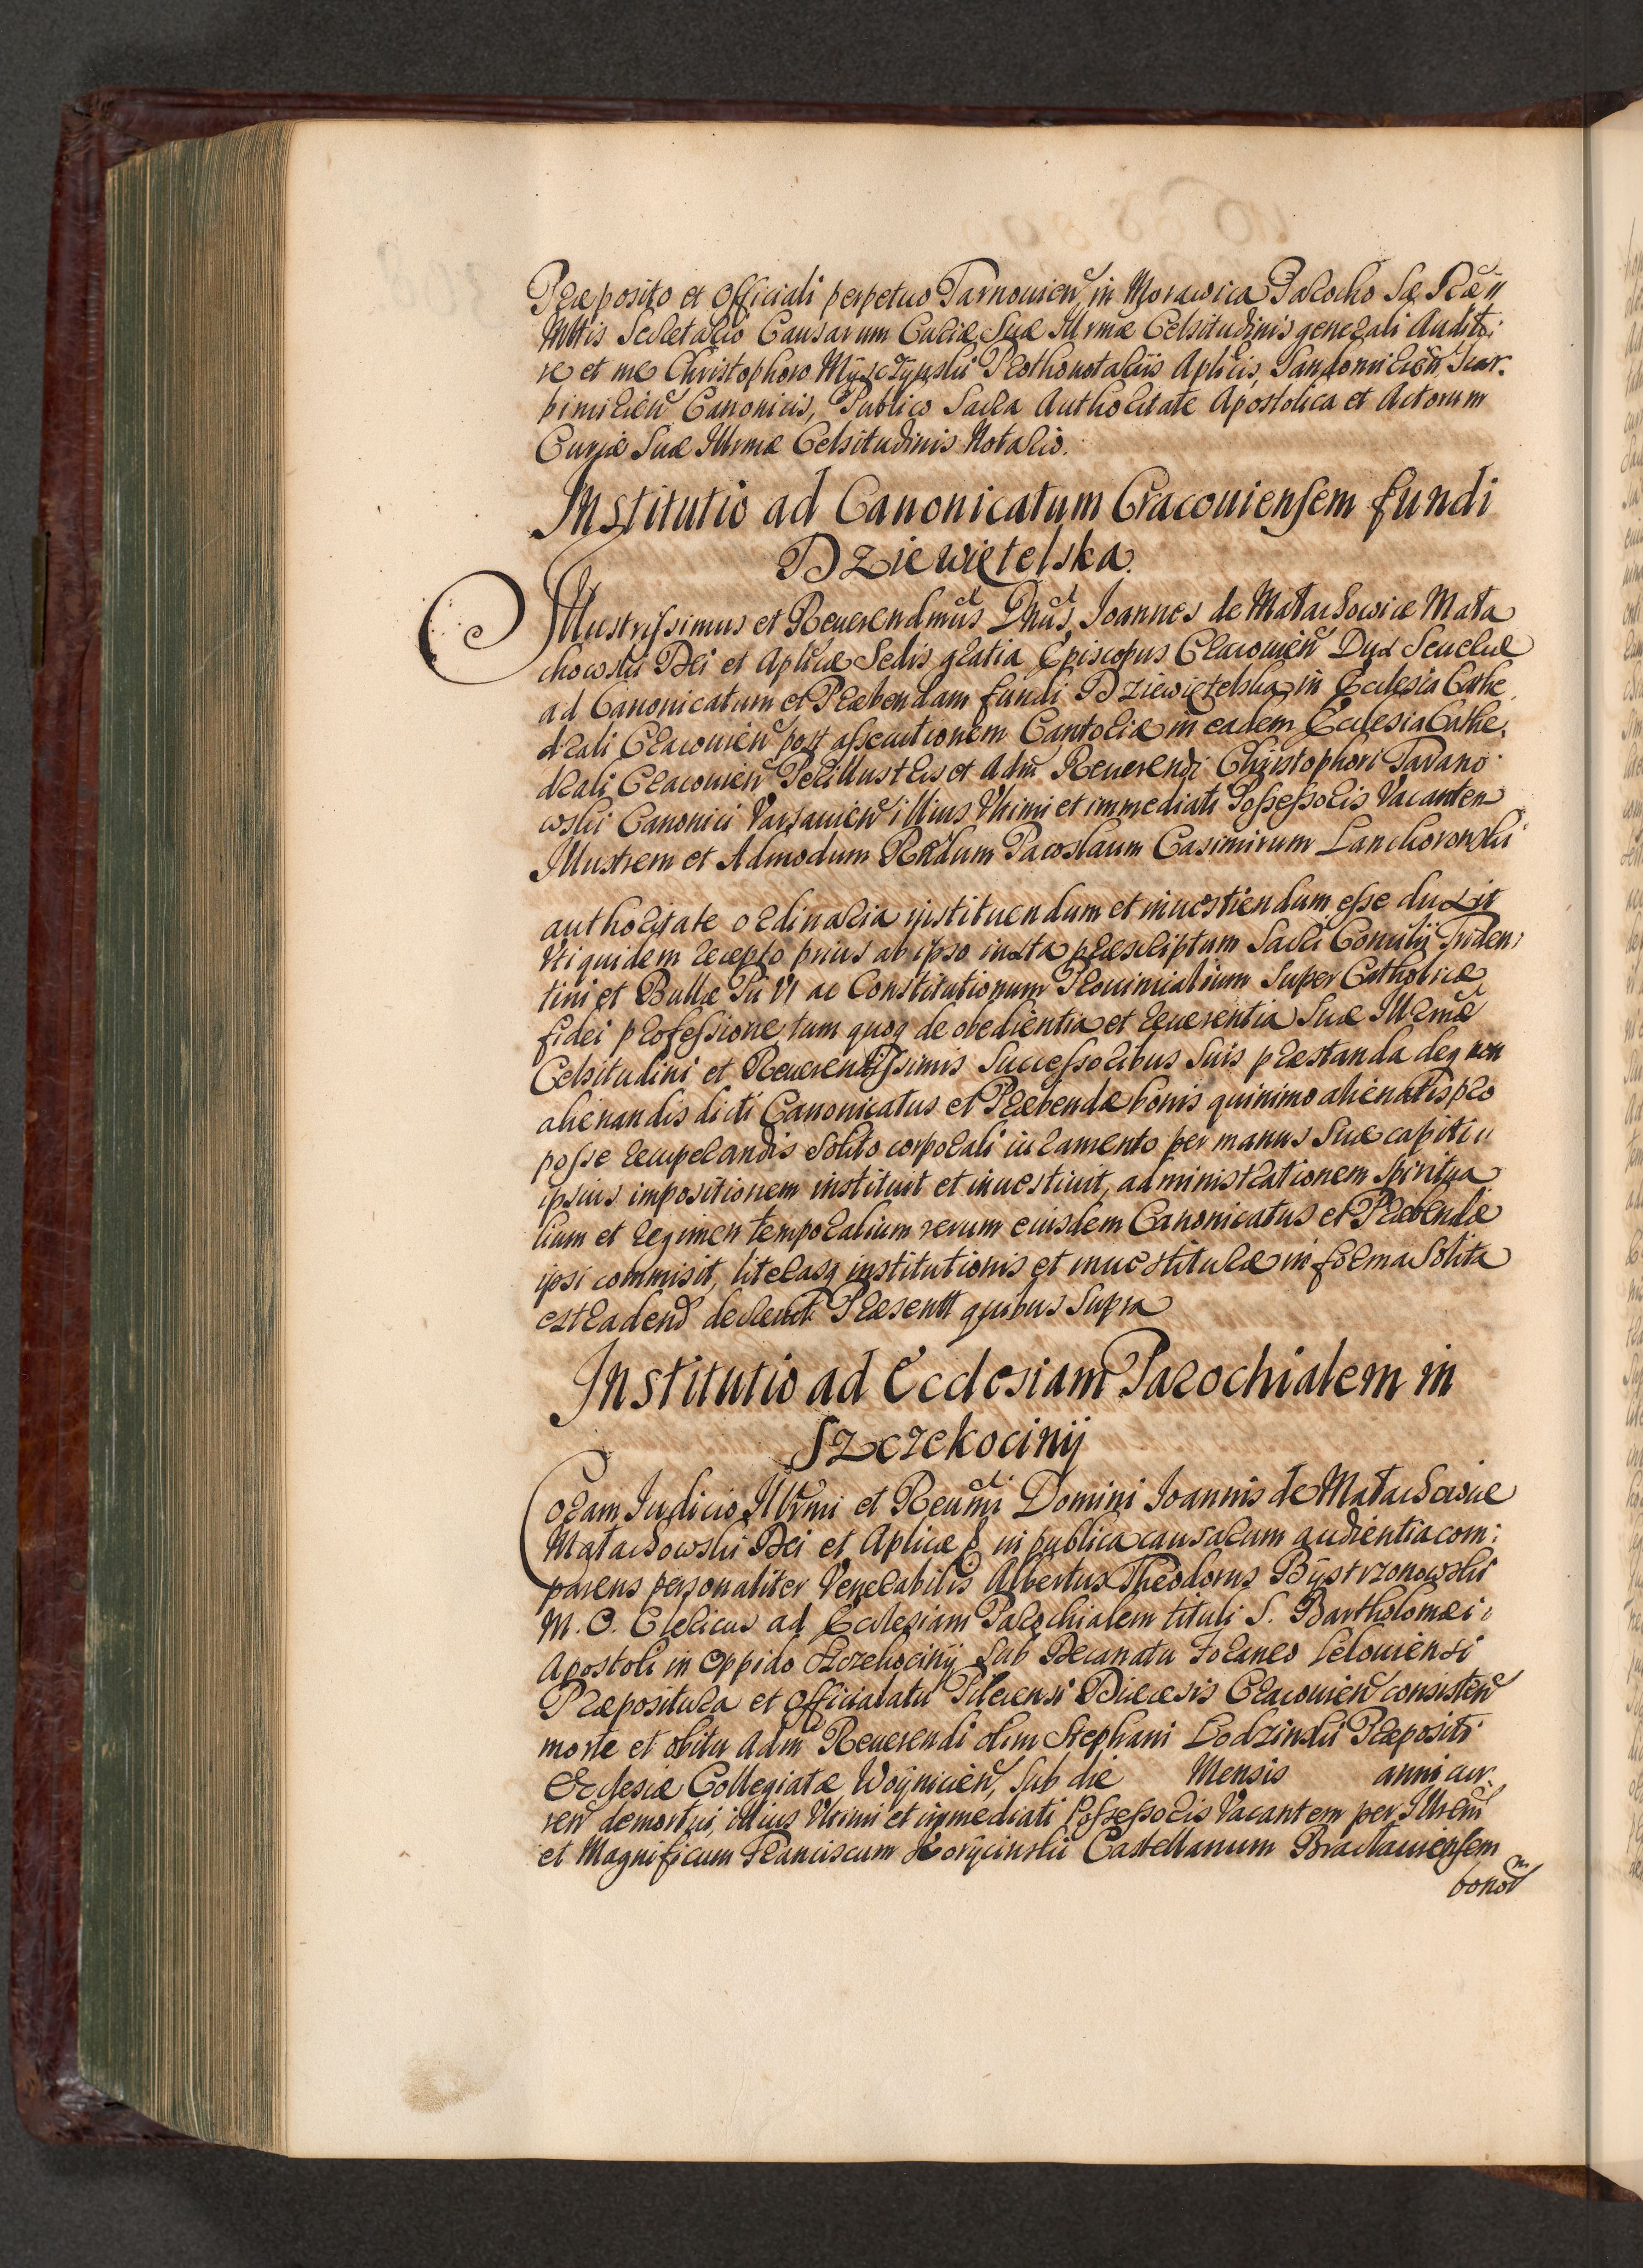 Præposito et Officiali perpetuo Tarnouień, in Morawica Parocho Sæ Ræ
Mttis Secretario Causarum Curiæ Suæ Illrmæ Celsitudinis generali Audito:
re et me Christophoro Mÿsczÿnski Prothonotariis Aplicis, Sandomirień, Scar-
bimirień Canonicis, Publico Sacra Authoritate Apostolica et Actorum
Curiæ Suæ Illrmæ Celsitudinis Notario.
Institutio ad Canonicatum Cracouiensem fundi
Dziewiętelska.
Illustrissimus et Reuerendmus Dnus, Joannes de Małachowice Mała
chowski Dei et Aplicæ Sedis gratia Episcopus Cracouień Dux Seueriæ
ad Canonicatum et Præbendam fundi Dziewiętelska in Ecclesia Cathe
drali Cracouień post assecutionem Cantoriæ in eadem Ecclesia Cathe.
drali Cracouień Perillustris et Adm Reuerendi Christophori Tarano
wski Canonici Varsauień illius Vltimi et immediati Possessoris Vacanten
Illustrem et Admodum Rndum Pacoslaum Casimirum Lanckoronski
authoritate ordinaria instituendum et inuestiendum esse duxit
Vti quidem recepto prius ab ipso iuxta præscriptum Sacri Concilij Triden:
tini et Bullæ Pii VI ac Constitutionum Prouincialium Super Catholicæ
fidei professione, tum quoq de obedientia et reuerentia Suæ Illrmæ
Celsitudini et Reuerendissimis Successoribus Suis præstanda deq non
alienandis dicti Canonicatus et Præbendæ bonis quinimo alienatis pro
posse recuperandis solito corporali iuramento per manus Suæ capiti
ipsius impositionem instituit et inuestiuit, administrationem spiritua
lium et regimen temporalium rerum eiusdem Canonicatus et Præbendæ
ipsi commisit, literasq institutionis et inuestituræ in forma Solita
extradend decreuit Præsentt quibus Supra
Institutio ad Ecclesiam Parochialem in
Szczekocinÿ
Coram Iudicio Illrmi et Reumi Domini Joannis de Małachowice
Małachowski Dei et Aplicæ in publica causarum audientia com:
parens personaliter Venerabilis Albertus Theodorus Bÿstrzonowski
M. O. Clericus ad Ecclesiam Parochialem tituli S. Bartholomæi
Apostoli in Oppido Szczekocinÿ Sub Decanatu Foraneo Lelouiensi
Præpositura et Officialatu Pilecensi Diæcesis Cracouień consisteń
morte et obitu Adm Reuerendi olim Stephani Lodzinski Præpositi
Ecclesiæ Collegiatæ Woÿnicień, Sub die Mensis anni cur.
reń demortui, illius Vltimi et immediati Possessoris Vacantem per Illrem
et Magnificum Franciscum Korÿcinski Castellanum Braclauiensem
bonor